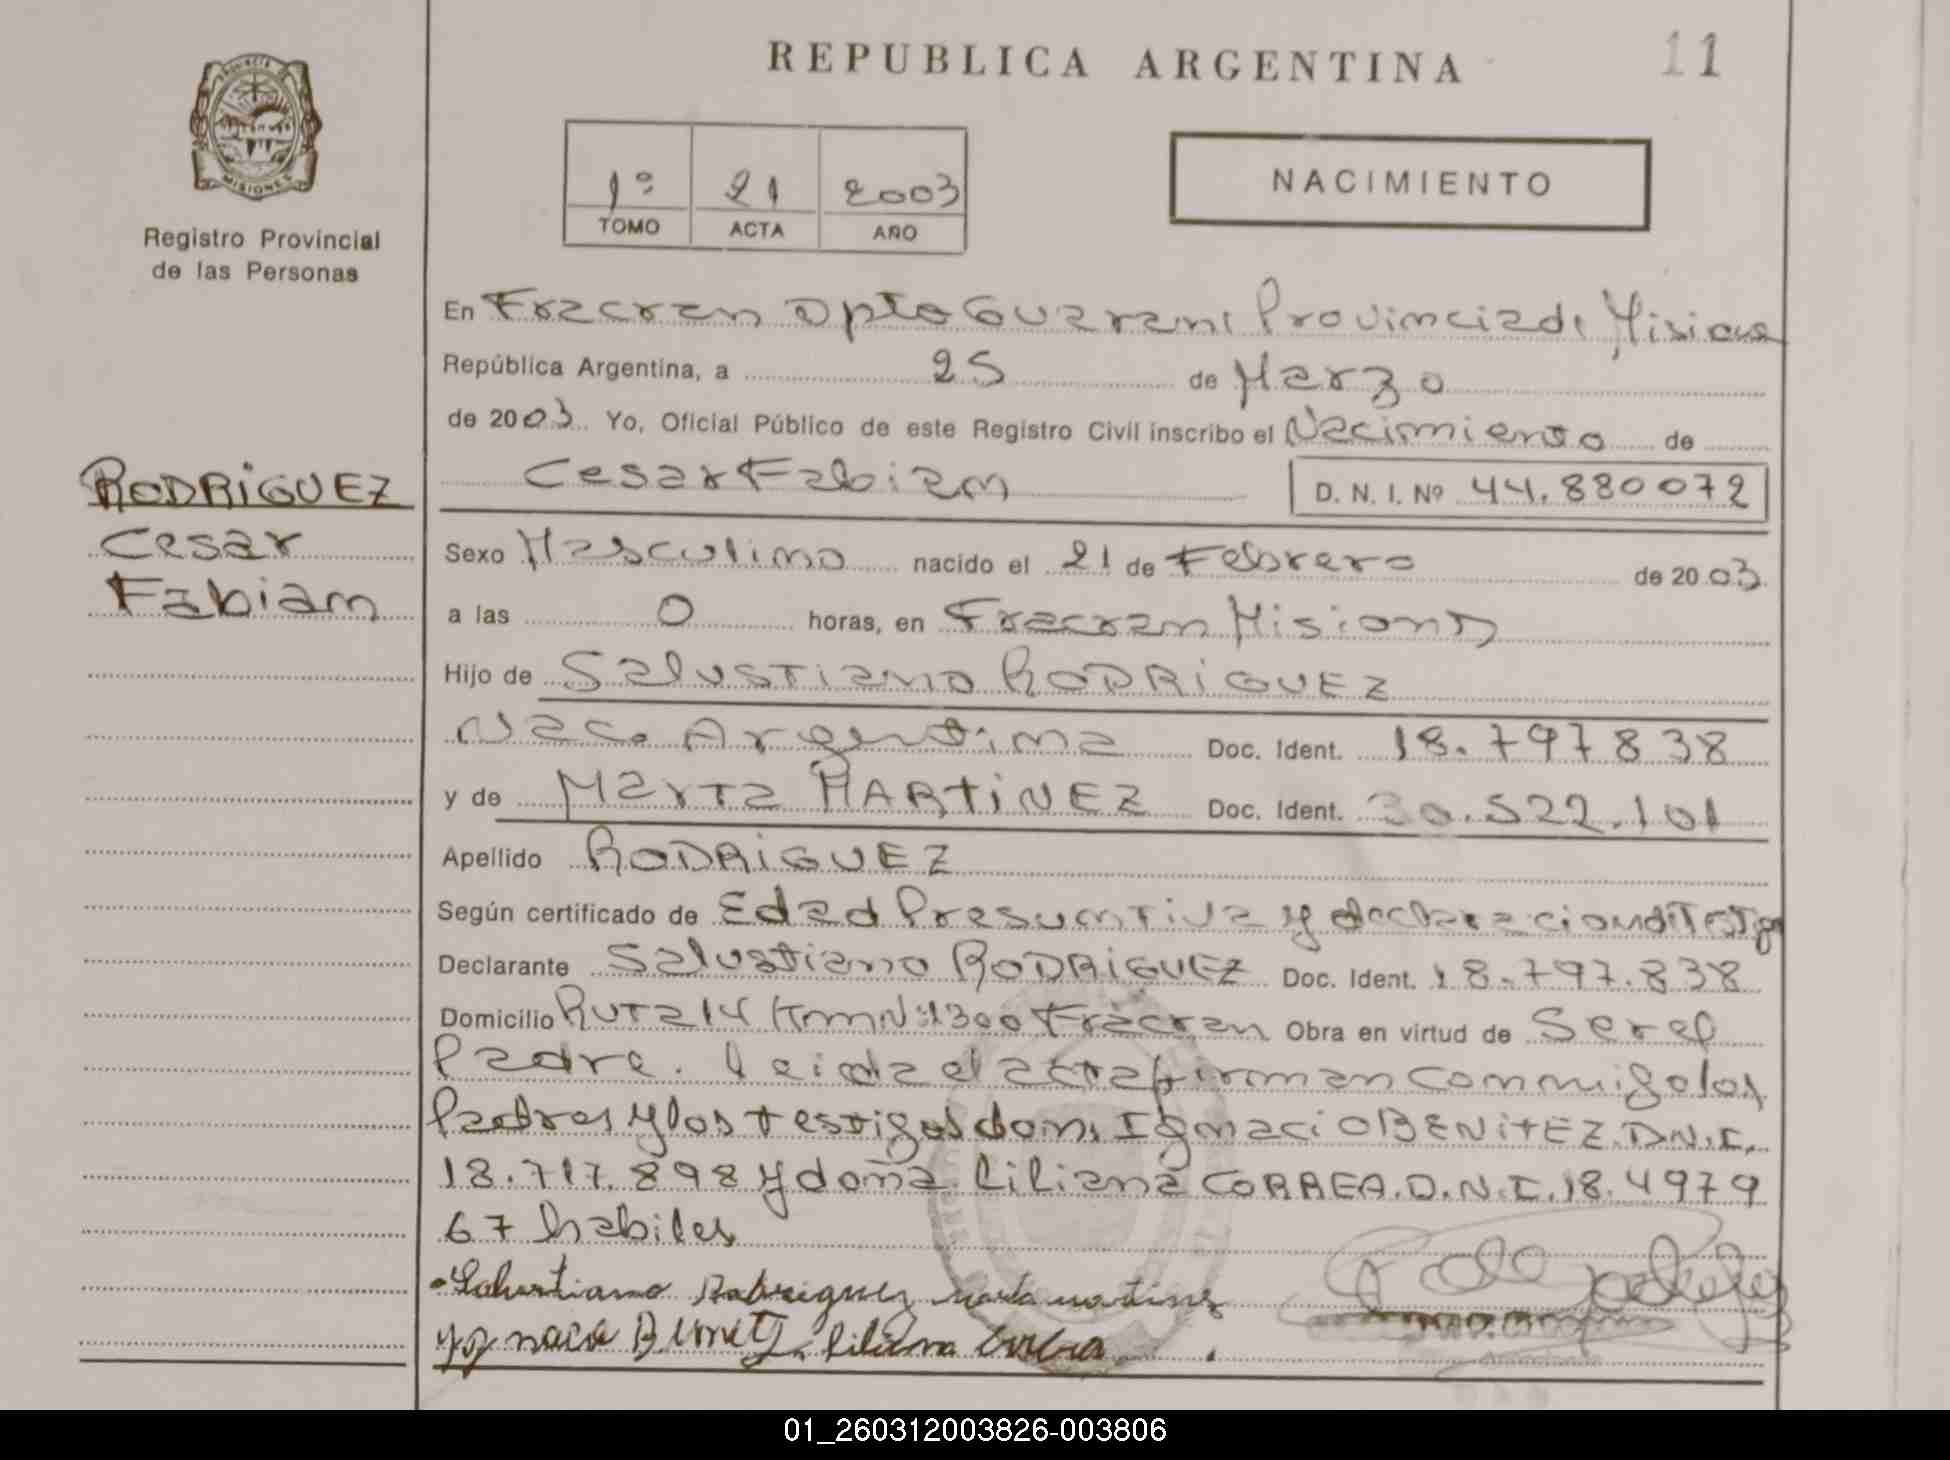 REPUBLICA ARGENTINA
11
PROVINCIA DE
MISIONES
Registro Provincial
de las Personas
1º 21 2003
TOMO ACTA AÑO
NACIMIENTO
En Fracran Dpto Guarani Provincia de Misiones
República Argentina, a 25 de Marzo
de 2003. Yo, Oficial Público de este Registro Civil inscribo el Nacimiento de
Cesar Fabian D. N. I. Nº 44.880072
RODRiGUEZ
Cesar
Fabian
Sexo Masculino nacido el 21 de Febrero de 2003
a las 0 horas, en Fracran Misiones
Hijo de Salustiano RODRiGUEZ
Nac. Argentina Doc. Ident. 18.797838
y de Marta MARTiNEZ Doc. Ident. 30.522.101
Apellido RODRiGUEZ
Según certificado de Edad Presuntiva y declaracion d Testigo
Declarante Salustiano RODRiGUEZ Doc. Ident. 18.797.838
Domicilio Ruta 14 Km Nº 1300 Fracran Obra en virtud de Ser el
Padre. Leida el acta firman conmigo los
Padres y los testigos don, Ignacio BENiTEZ D.N.I.
18.717.898 y doña Liliana CORREA. D.N.I. 18.4979
67 habiles
Salustiano Rodriguez Marta martinez
Ygnacio Benitez Liliana Correa
01_260312003826-003806